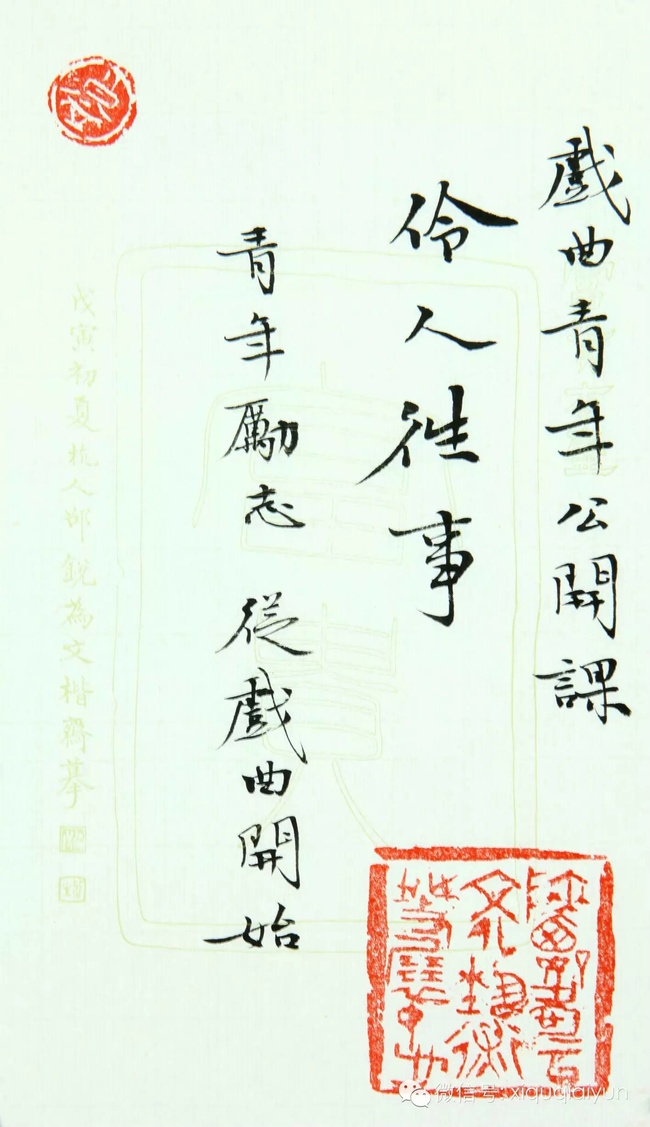 戲曲青年公開課
伶人徃事
青年勵志 從戲曲開始
戊寅初夏杭人邵銳為文楷齋摹
微信号: